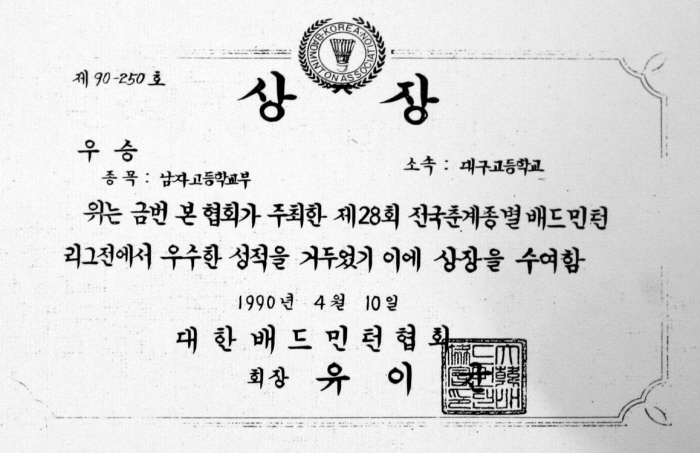 KOREA BADMINTON ASSOCIATION
제 90-250 호
상 장
우 승
소속 : 대구고등학교
종목 : 남자고등학교부
위는 금번 본 협회가 주최한 제28회 전국춘계종별배드민턴
리그전에서 우수한 성적을 거두었기 이에 상장을 수여함
1990년 4월 10일
대한배드민턴협회
회장 유 이